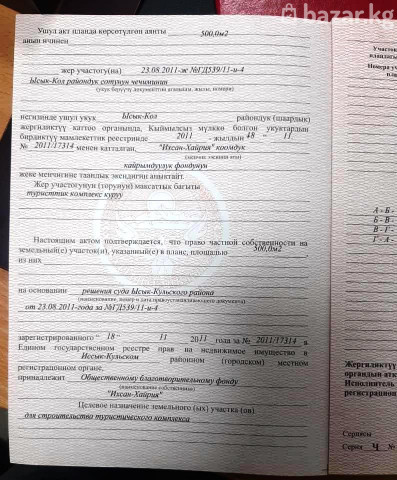 bazar.kg
Ушул акт планда көрсөтүлгөн аянты 500,0м2
анын ичинен
жер участогу(на) 23.08.2011-ж №ГД539/11-и-4
Ысык-Кол райондук сотунун чечиминин
негизинде ушул укук Ысык-Кол райондук (шаардык)
жергиликтүү каттоо органында, Кыймылсыз мүлккө болгон укуктардын
бирдиктүү мамлекеттик реестринде 2011 - жылдын 18 - 11.
№ 2011/17314 менен катталган, "Ихсан-Хайрия" коомдук
кайрымдуулук фондунун
жеке менчигине таандык экендигин аныктайт.
Жер участогунун (торунун) максаттык багыты
туристтик комплекс куруу
Настоящим актом подтверждается, что право частной собственности на
земельный(е) участок(и), указанный(е) в плане, площадью 500,0м2
из них
на основании решения суда Ысык-Кульского района
(наименование, номер и дата правоустанавливающего документа)
от 23.08.2011-года за №ГД539/11-и-4
зарегистрированного " 18 " 11 2011 года за № 2011/17314 в
Едином государственном реестре прав на недвижимое имущество в
Иссык-Кульском районном (городском) местном
регистрационном органе,
принадлежит Общественному благотворительному фонду
(наименование собственника)
"Ихсан-Хайрия"
Целевое назначение земельного (ых) участка (ов)
для строительства туристического комплекса
Участок
Номера уч
А - Б -
Б - В -
В - Г -
Г - А -
Жергиликтүү
органдын атк
Исполнитель
регистрацион
Сериясы
Серия Ч №